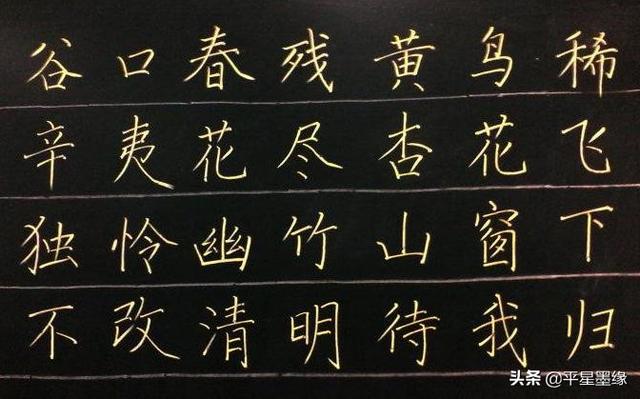 谷口春残黄鸟稀
辛夷花尽杏花飞
独怜幽竹山窗下
不改清明待我归
头条 @平星墨缘